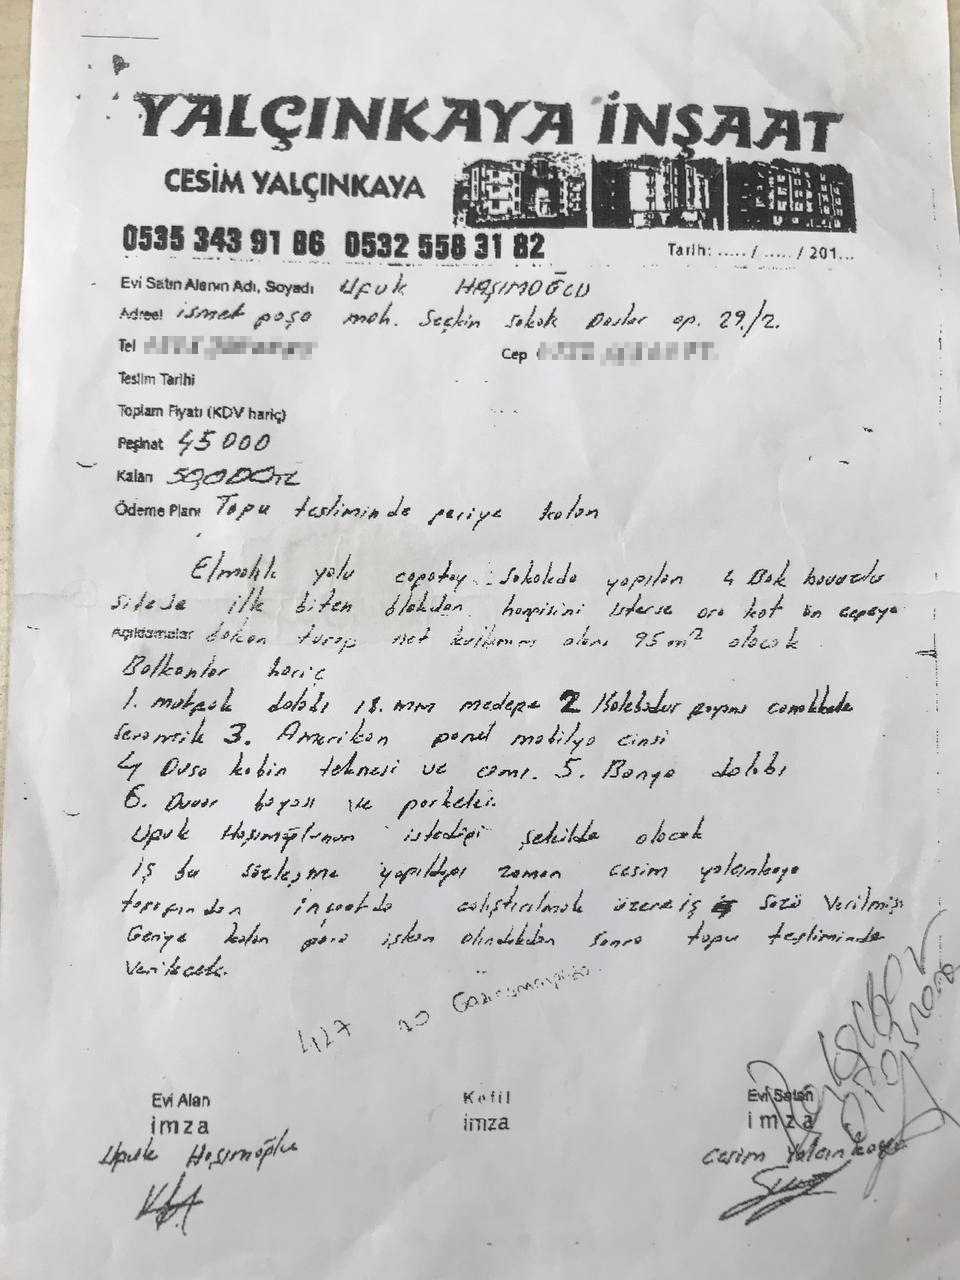 YALÇINKAYA İNŞAAT
CESİM YALÇINKAYA
0535 343 91 86 0532 558 31 82
Tarih: ..... / ..... / 201...
Evi Satın Alanın Adı, Soyadı Ufuk HAŞIMOĞLU
Adresi ismet paşa mah. Seçkin sokak Dostlar ap. 29/2.
Tel
Cep
Teslim Tarihi
Toplam Fiyatı (KDV hariç)
Peşinat 45000
Kalan 50,000 TL
Ödeme Planı Tapu tesliminde geriye kalan
Elmalık yolu sokakda yapılan 4 Blok havuzlu
sitede ilk biten blokdan hangisini isterse ara kat ön cepeye
Açıklamalar bakan net kullanım alanı 95 m² olacak
Balkonlar hariç
1. mutfak dolabı 18. mm medepe 2 Kalebodur
seramik 3. Amerikan panel mobilya cinsi
4 Duşa kabin teknesi ve camı. 5. Banyo dolabı
6. Duvar boyası ve parkeler
Ufuk Haşımoğlunun istediği şekilde olacak
iş bu sözleşme yapıldığı zaman cesim yalçınkaya
tarafından inşaatda çalıştırılmak üzere iş sözü verilmiş
Geriye kalan para iskan alındıkdan sonra tapu tesliminde
verilecek.
Evi Alan
imza
Ufuk Haşımoğlu
Kefil
imza
Evi Satan
imza
Cesim Yalçınkaya